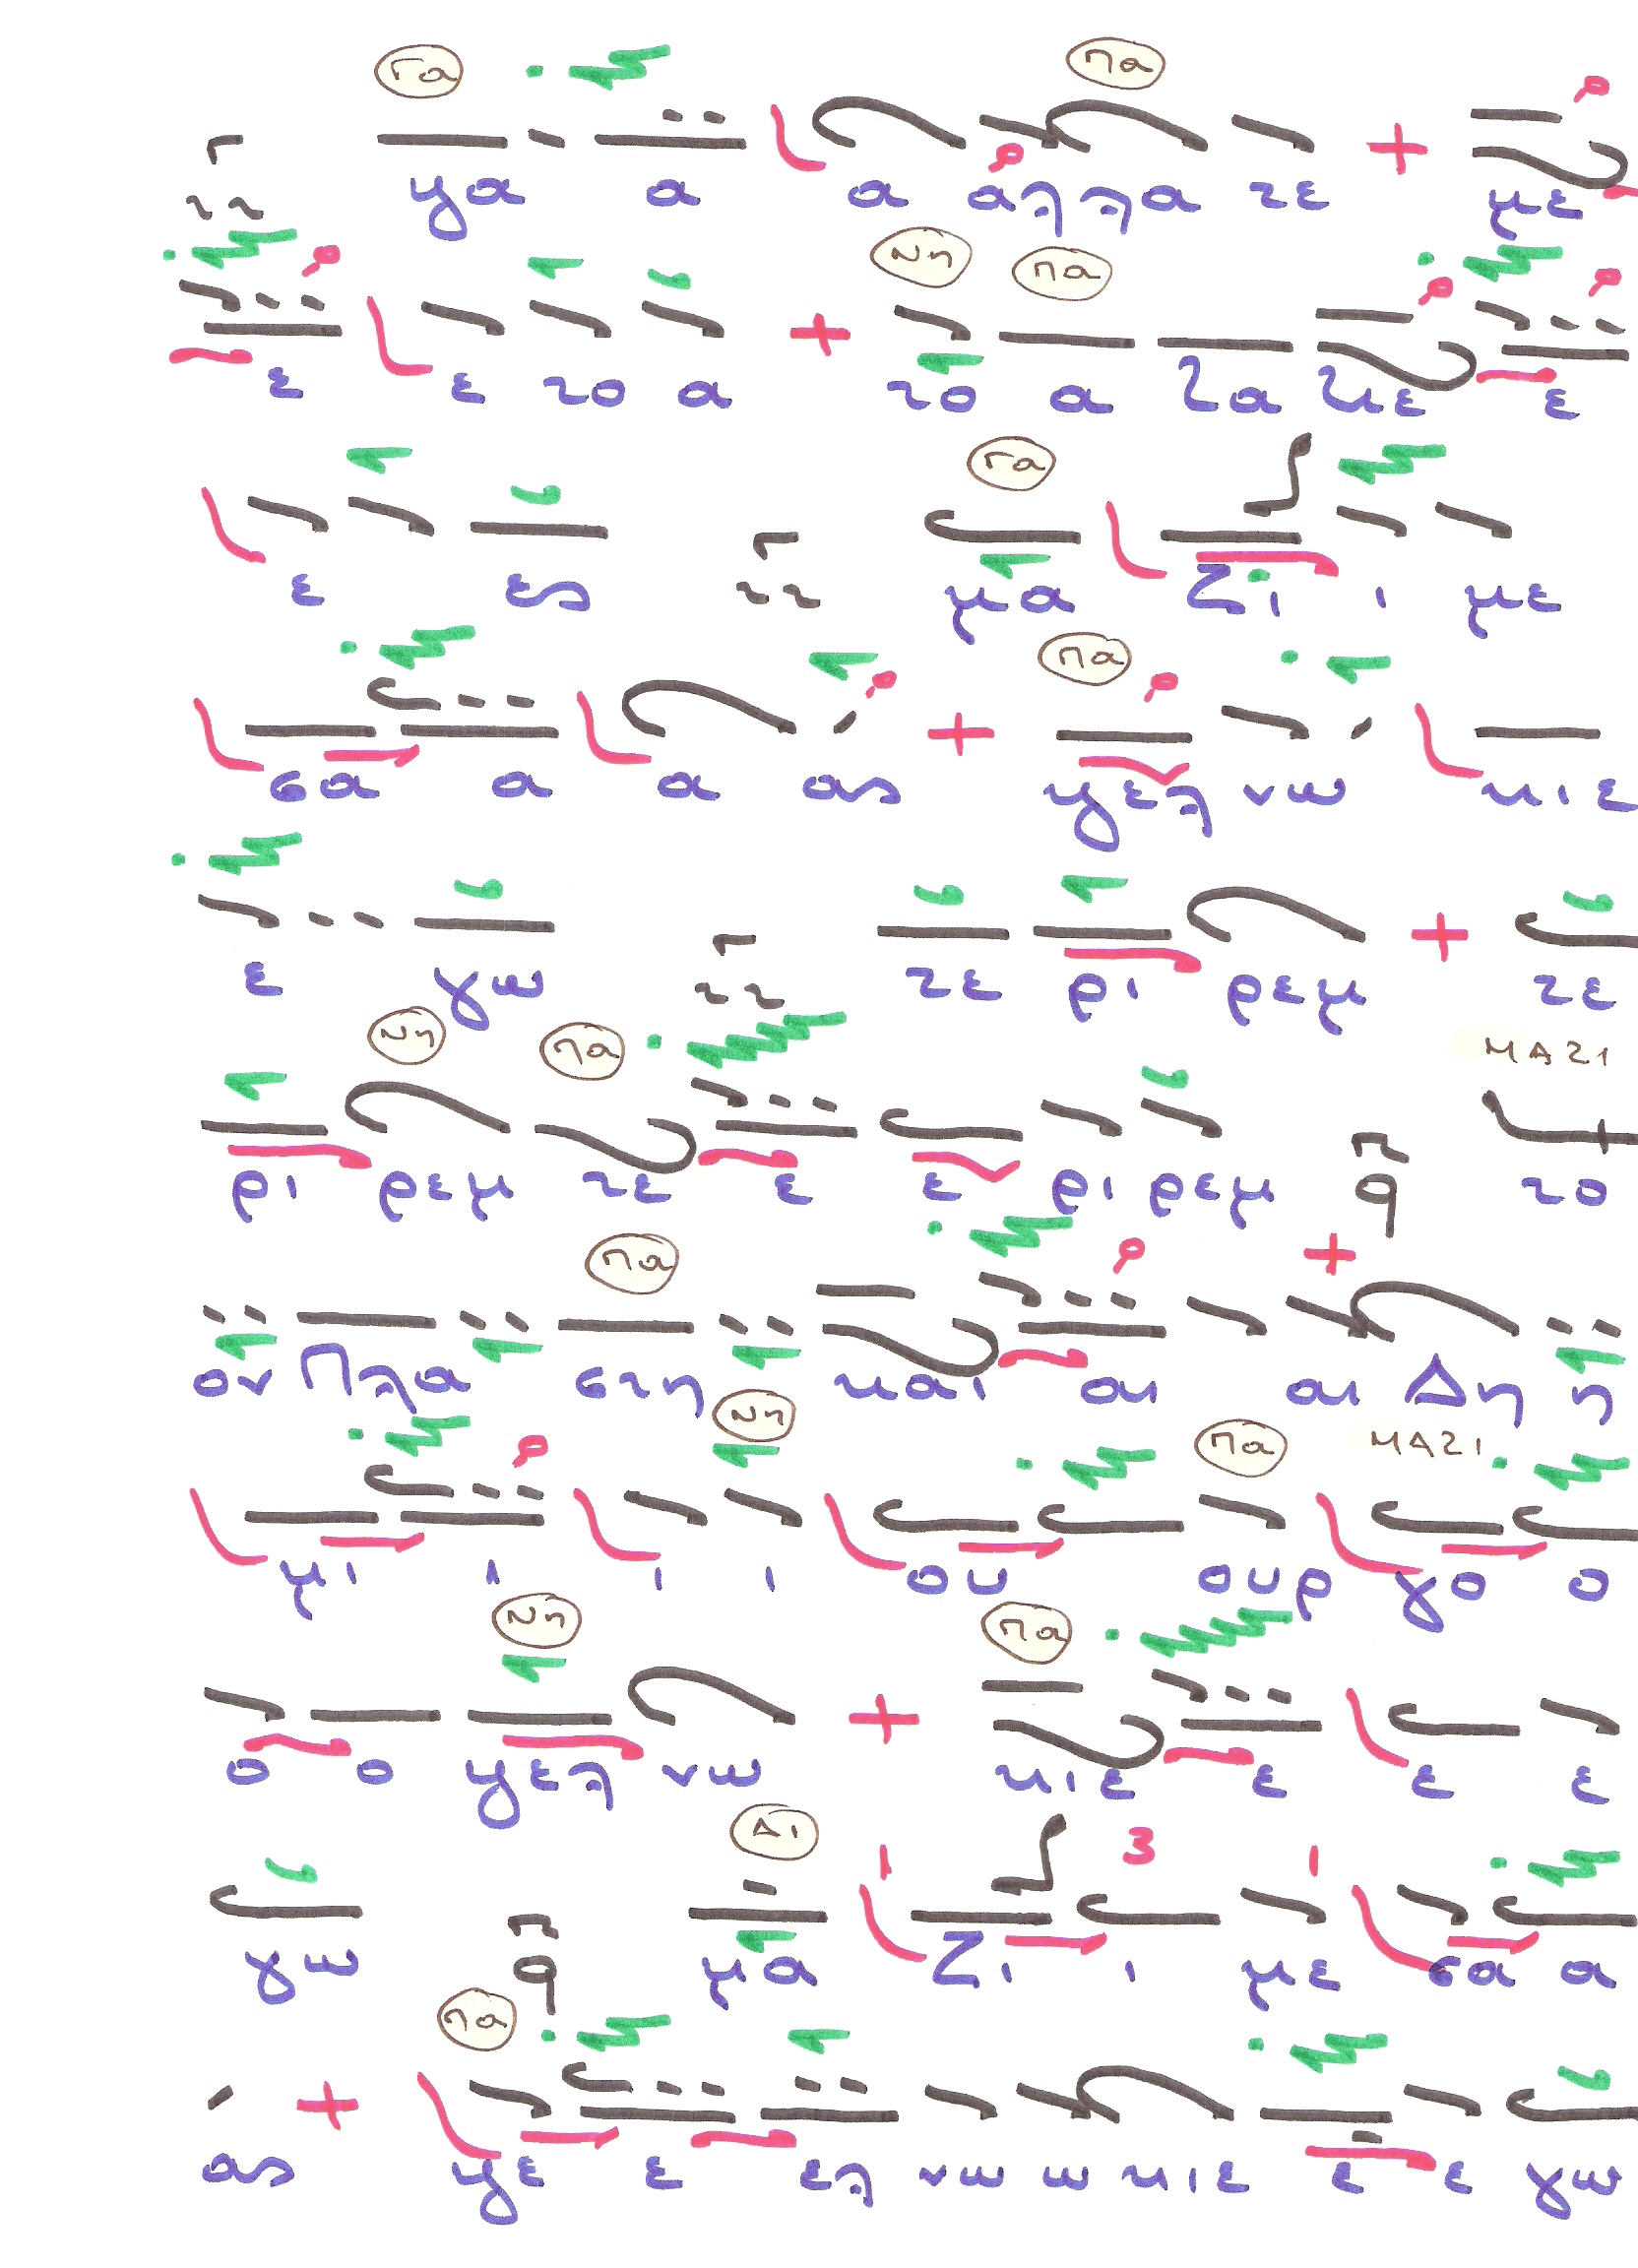 Γα Πα
ψα α α αλλα τε με
Νη Πα
ε ε το α το α ε
Γα
ε ες μα ζι ι με
Πα
σα α α ας ψελ νω κιε
ε γω τε ρι ρεμ τε
Νη Πα ΜΑΖΙ
ρι ρεμ τε ε ε ρι ρεμ q το
Πα
ον Πλα στη και αι αι Δη η
Νη Πα ΜΑΖΙ
μι ι ι ι ου ουρ γο ο
Νη Πα
ο ο ψελ νω κιε ε ε ε
Δι 1 3 1
γω q μα ζι ι με σα α
Πα
ας ψε ε ελ νω ω κιε ε ε γω